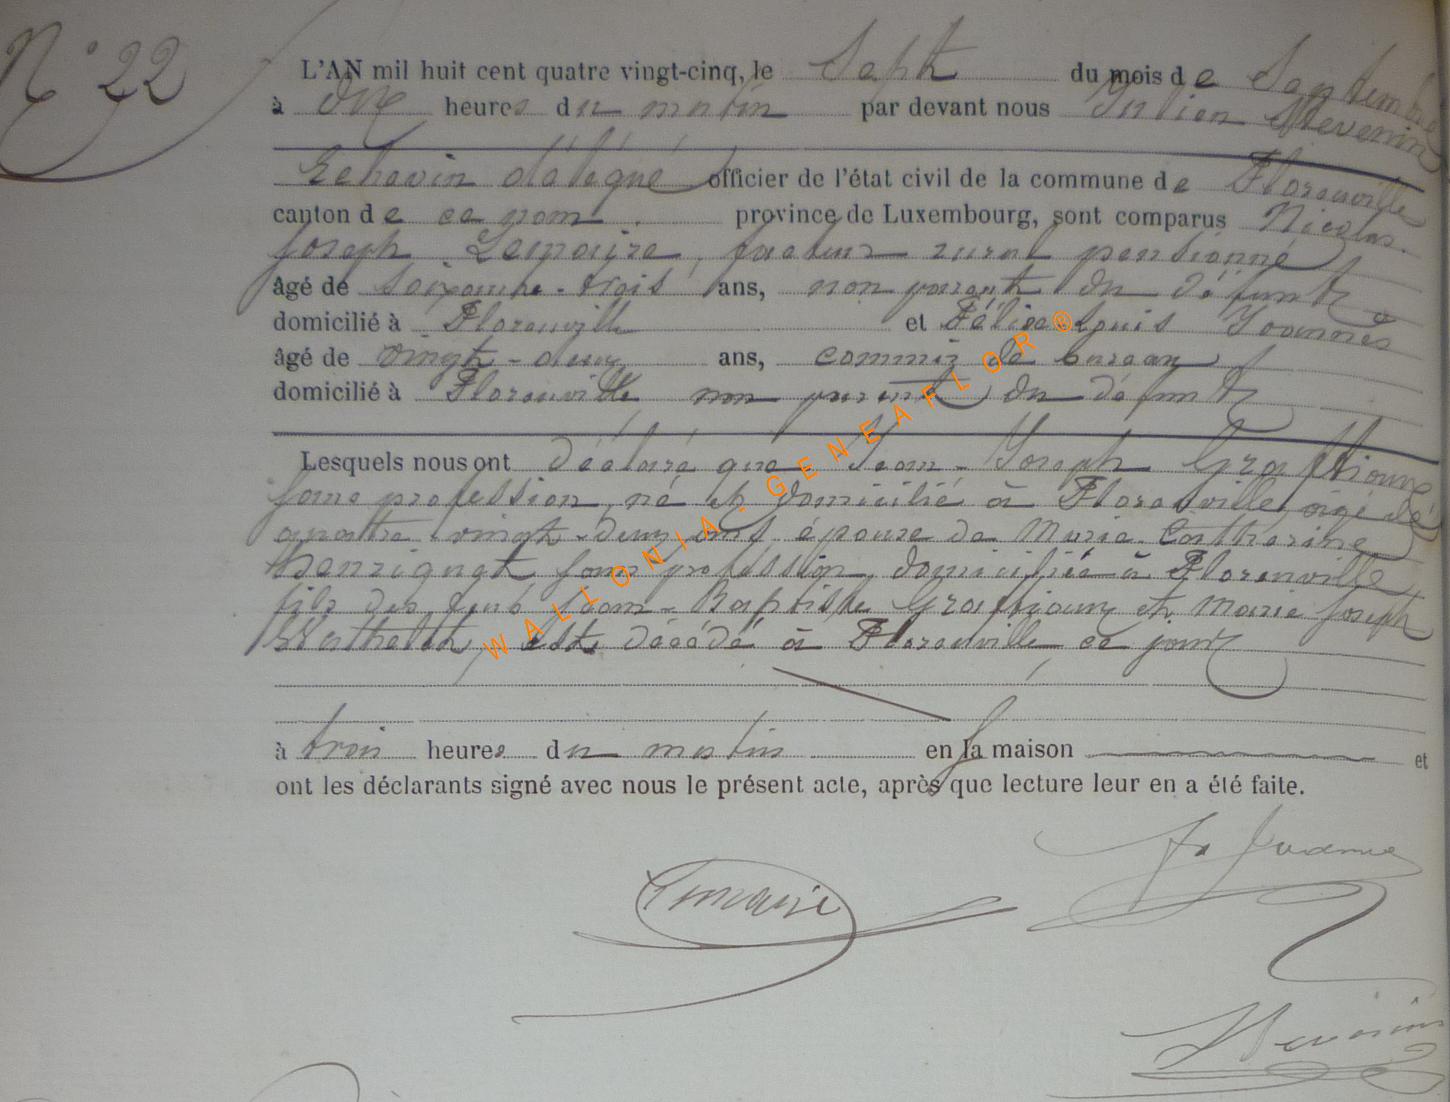 N° 22
L'AN mil huit cent quatre vingt-cinq, le Sept du mois de Septembre
à onze heures du matin par devant nous Julien Thevenin
Echevin délégué officier de l'état civil de la commune de Florenville
canton de ce nom. province de Luxembourg, sont comparus Nicolas
Joseph Lemaire, facteur rural pensionné
âgé de soixante-trois ans, non parent du défunt
domicilié à Florenville et Félix Louis Joannes
âgé de vingt-deux ans, commis de bureau
domicilié à Florenville non parent du défunt
Lesquels nous ont déclaré que Jean-Joseph
sans profession, né et domicilié à Florenville, âgé de
quatre vingt-deux ans époux de Marie Catherine
Henriquet sans profession, domiciliée à Florenville
fils des feus Jean-Baptiste et Marie Joseph
est décédé à Florenville ce jour
à trois heures du matin en sa maison et
ont les déclarants signé avec nous le présent acte, après que lecture leur en a été faite.
Lemaire
WALLONIA - GENEAFLOR®